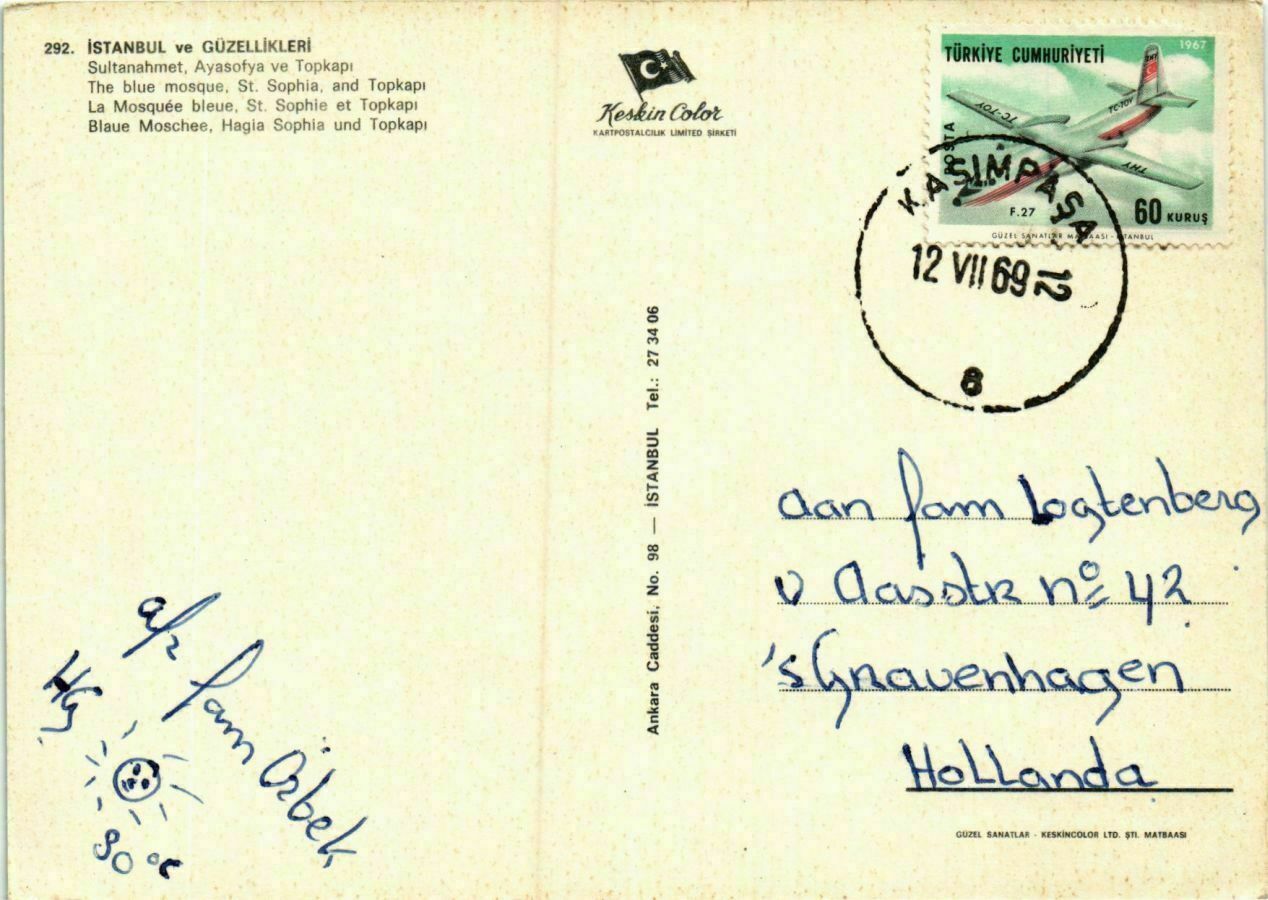 292. İSTANBUL ve GÜZELLİKLERİ
Sultanahmet, Ayasofya ve Topkapı
The blue mosque, St. Sophia, and Topkapı
La Mosquée bleue, St. Sophie et Topkapı
Blaue Moschee, Hagia Sophia und Topkapı
Keskin Color
KARTPOSTALCILIK LIMITED ŞİRKETİ
TÜRKİYE CUMHURİYETİ
1967
THY
TC-TOY
TC-TOY
THY
POSTA
F.27
60 KURUŞ
GÜZEL SANATLAR MATBAASI - İSTANBUL
KASIMPAŞA
12 VII 69 12
8
Ankara Caddesi, No. 98 — İSTANBUL Tel.: 27 34 06
aan fam Logtenberg
v Aasstr nº 42
's Gravenhagen
Hollanda
a/z fam Özbek
Hg
30 °C
GÜZEL SANATLAR - KESKİNCOLOR LTD. ŞTİ. MATBAASI